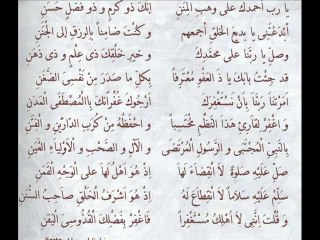 يَا رَبِّ أَحْمَدُكَ عَلَى وَهْبِ الْمِنَنِ إِنَّكَ ذُو كَرَمٍ وَ ذُو فَضْلٍ حَسَنٍ
أَبْدَعْتَنِي يَا بَدِيعَ الْخَلْقِ أَجْمَعِهِمْ وَ كُنْتَ ضَامِنَنَا بِالرِّزْقِ إِلَى الْجَنَنِ
وَصَلِّ يَا رَبَّنَا عَلَى مُحَمَّدِكَ وَ خَيْرِ خَلْقِكَ ذِي عِلْمٍ وَ ذِي ذِهَنٍ
قَدْ جِئْتُ بَابَكَ يَا ذَ الْعَفْوِ مُعْتَرِفًا بِكُلِّ مَا صَدَرَ مِنْ نَفْسِي الضَّغَنِ
أَمَرْتَنَا رَبَّنَا بِأَنْ نَسْتَغْفِرَكَ أَرْجُوكَ غُفْرَانَكَ بِالْمُصْطَفَى الْمَدَنِ
وَ اغْفِرْ لِقَارِئِ هَذَا النَّظْمِ مُحْتَسِبًا وَ احْفَظْهُ مِنْ كُرَبِ الدَّارَيْنِ وَ الْفِتَنِ
بِالنَّبِيِّ الْمُجْتَبَى وَ الرَّسُولِ الْمُرْتَضَى وَ الْآلِ وَ الصَّحْبِ وَ الْأَوْلِيَاءِ الْغُيَنِ
صَلِّ عَلَيْهِ صَلَاةً لَا انْقِضَاءَ لَهَا إِذْ هُوَ أَهْلٌ لَهَا عَلَى الْوَجْهِ الْقَمَنِ
سَلِّمْ عَلَيْهِ سَلَامًا لَا انْقِطَاعَ لَهُ إِذْ هُوَ أَشْرَفُ الْخَلْقِ صَاحِبُ السُّنَنِ
وَ قُلْتُ إِنِّي لَا أَهْلُكَ مُسْتَغْفِرًا فَاغْفِرْ بِفَضْلِكَ الْقُدُّوسِي الْيَقَنِ